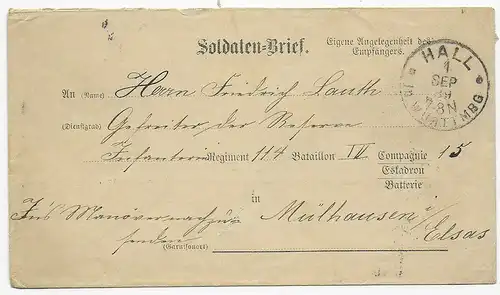 Soldaten-Brief.
Eigene Angelegenheit des
Empfängers.
HALL
1
SEP
7-8N
IN WÜRTTMBG
An (Name) Herrn Friedrich Lauth
(Dienstgrad) Gefreiter der Reserve
Infanterie Regiment 114 Bataillon IV Compagnie 15
Escadron
Batterie
in
Ins Manöver nachzu
senden
(Garnisonort)
Mülhausen i/
Elsas